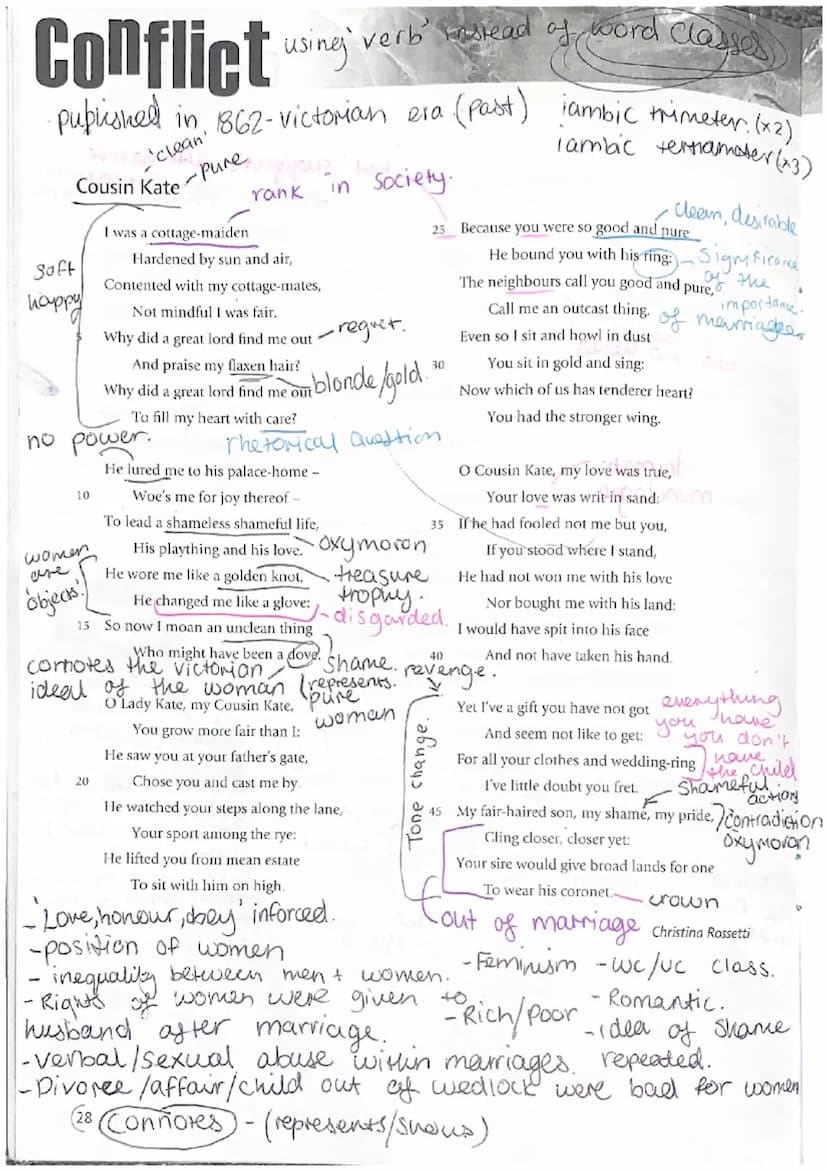 Conflict
using 'verb' instead of word classes
published in 1862 - victorian era (past)
iambic trimeter (x2)
iambic
(x3)
'clean'
pure
Cousin Kate
rank in society.
I was a cottage-maiden
Hardened by sun and air,
Contented with my cottage-mates,
Not mindful I was fair.
Why did a great lord find me out
And praise my flaxen hair?
Why did a great lord find me out
To fill my heart with care?
soft
happy
5
regret.
blonde/gold.
no power.
rhetorical question
He lured me to his palace-home –
10 Woe's me for joy thereof –
To lead a shameless shameful life,
His plaything and his love.
He wore me like a golden knot,
He changed me like a glove:
15 So now I moan an unclean thing
Who might have been a dove.
oxymoron
women
are
'objects'.
treasure
trophy.
disgarded.
shame.
connotes the victorian
ideal of the woman
(represents.
pure
woman
O Lady Kate, my Cousin Kate,
You grow more fair than I:
He saw you at your father's gate,
20 Chose you and cast me by.
He watched your steps along the lane,
Your sport among the rye:
He lifted you from mean estate
To sit with him on high.
25 Because you were so good and pure
He bound you with his ring:
The neighbours call you good and pure,
Call me an outcast thing.
Even so I sit and howl in dust
30 You sit in gold and sing:
Now which of us has tenderer heart?
You had the stronger wing.
clean, desirable
Significance
of the
importance.
of marriage.
O Cousin Kate, my love was true,
Your love was writ in sand:
35 If he had fooled not me but you,
If you stood where I stand,
He had not won me with his love
Nor bought me with his land:
I would have spit into his face
40 And not have taken his hand.
revenge.
Tone change.
Yet I've a gift you have not got
And seem not like to get:
For all your clothes and wedding-ring
I've little doubt you fret.
45 My fair-haired son, my shame, my pride,
Cling closer, closer yet:
Your sire would give broad lands for one
To wear his coronet.
everything
you have
you don't
have
the child
Shameful
action
contradiction
oxymoron
crown
out of marriage
Christina Rossetti
- 'Love, honour, obey' inforced.
- position of women
- inequality between men + women.
- Rights of women were given to
husband after marriage.
- verbal/sexual abuse within marriages.
- Divorce/affair/child out of wedlock were bad for women
- Feminism
- WC/UC class.
- Rich/poor
- Romantic.
- idea of shame
repeated.
28
connotes - (represents/shows)